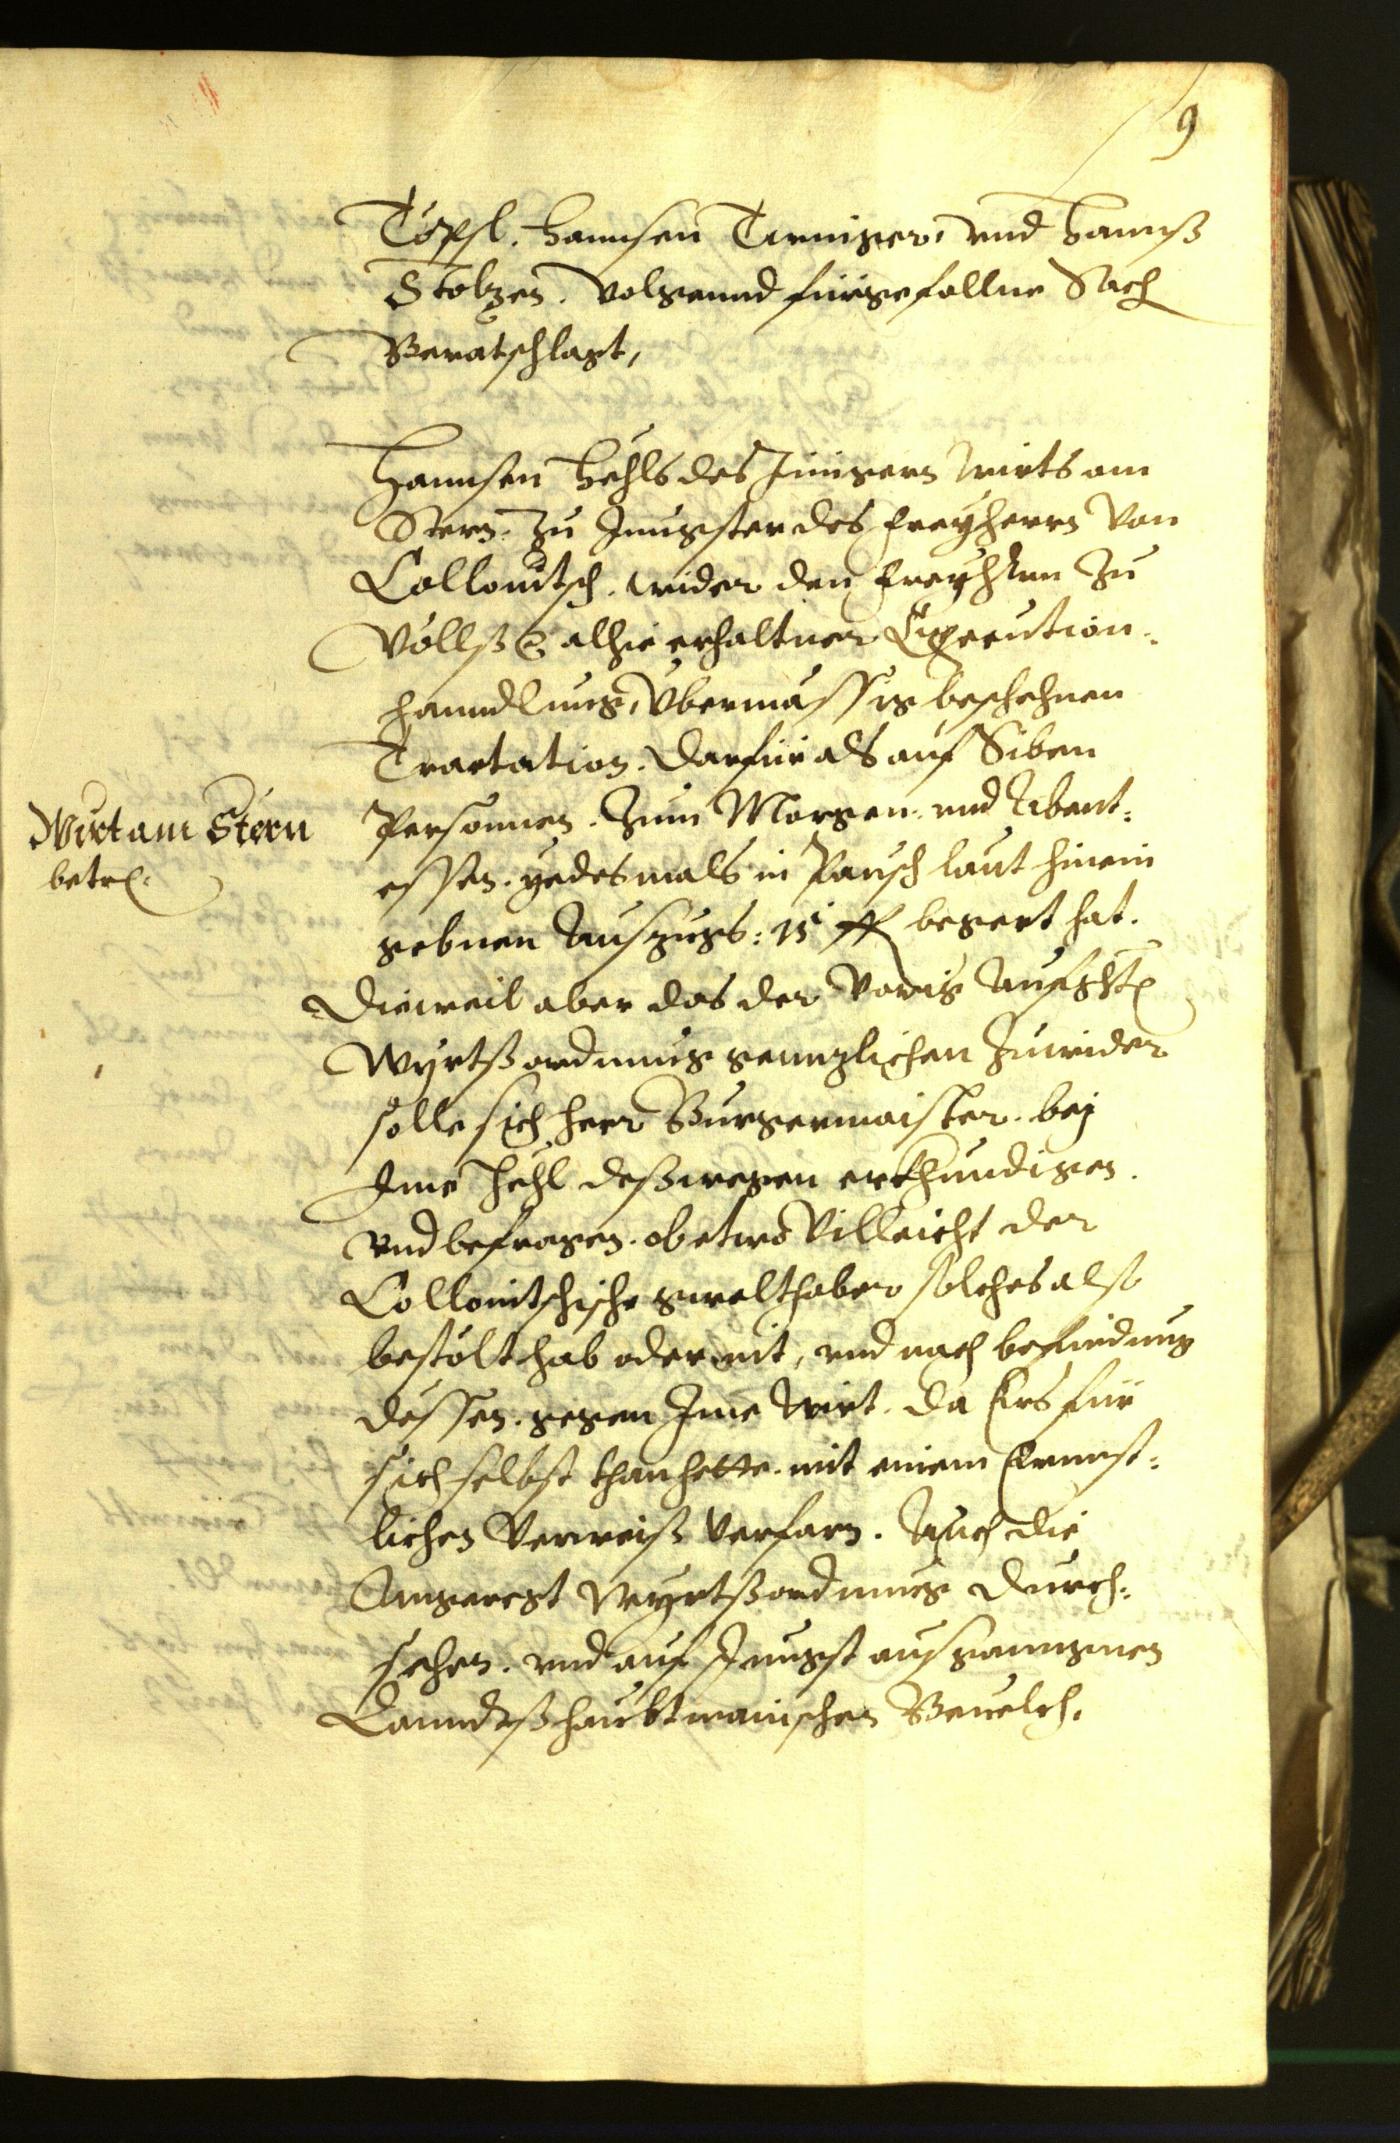 9
Töpsl. Hannsen Curniger, vnd Hannß
Stolzen. volgennd fürgefallne Sach
Beratschlagt,
Hannsen Hehls des Jüngern Wirts am
Stern. Zu Jungster des Freyherrn von
Collonitsch. wider den Freyherrn Zu
Völlß &c. alhie erhaltner Execution-
hanndlung, Vbermässig beschehnen
Tractation. darfür als auf Siben
Personnen. Zum Morgen. vnd Abent-
essen. yedes mals in Pausch laut hinein
gebnen Auszugs: 15 f begert hat.
Wirt am Stern
betr.
Dieweil aber das der vorig Aufgste
Wyrtßordnung genntzlichen Zuwider
solle sich Herr Burgermaister. bej
Ime Hehl deßwegen erkhundigen.
vnd befragen. ob etwo villeicht der
Collonitschische gwalthaber solches also
bestölt hab oder nit, vnd nach befindung
dessen. gegen Ime Wirt. da Ers für
sich selbst than hette. mit einem Ernnst-
lichen Verweiß verfarn. Auch die
Angeregt Wyrtßordnung durch-
sehen. vnd auf Jungst ausganngnen
Lanndtßhaubtmanischen Beuelch.